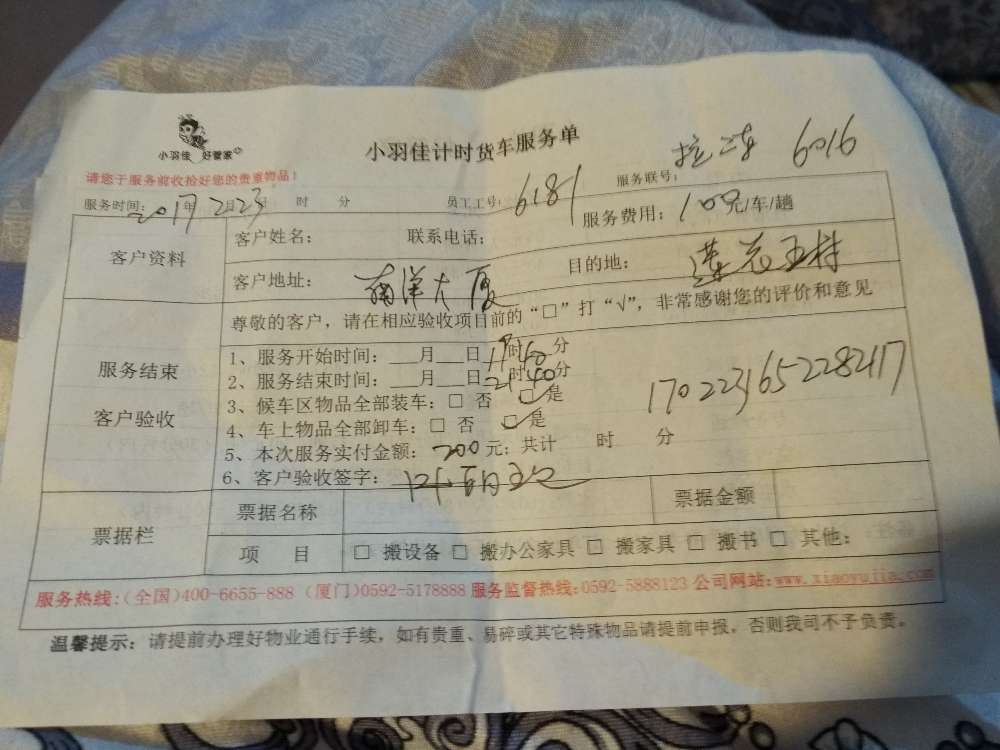 小羽佳 好管家
小羽佳计时货车服务单
请您于服务前收拾好您的贵重物品！
服务联号： 拉二车 6016
服务时间：2017年2月23日 时 分 员工工号：6181
服务费用：100元/车/趟
客户资料
客户姓名： 联系电话：
客户地址： 南洋大厦 目的地： 莲花五村
尊敬的客户，请在相应验收项目前的“□”打“√”，非常感谢您的评价和意见
服务结束
客户验收
1、服务开始时间：___月___日 时 分
2、服务结束时间：___月___日21时40分
3、候车区物品全部装车：□ 否 ☑ 是
4、车上物品全部卸车：□ 否 ☑ 是
170223165228217
5、本次服务实付金额：200元；共计 时 分
6、客户验收签字：
票据栏
票据名称 票据金额
项 目 □ 搬设备 □ 搬办公家具 □ 搬家具 □ 搬书 □ 其他：
服务热线：(全国)400-6655-888 (厦门)0592-5178888 服务监督热线：0592-5888123 公司网站：www.xiaoyujia.com
温馨提示：请提前办理好物业通行手续，如有贵重、易碎或其它特殊物品请提前申报，否则我司不予负责。